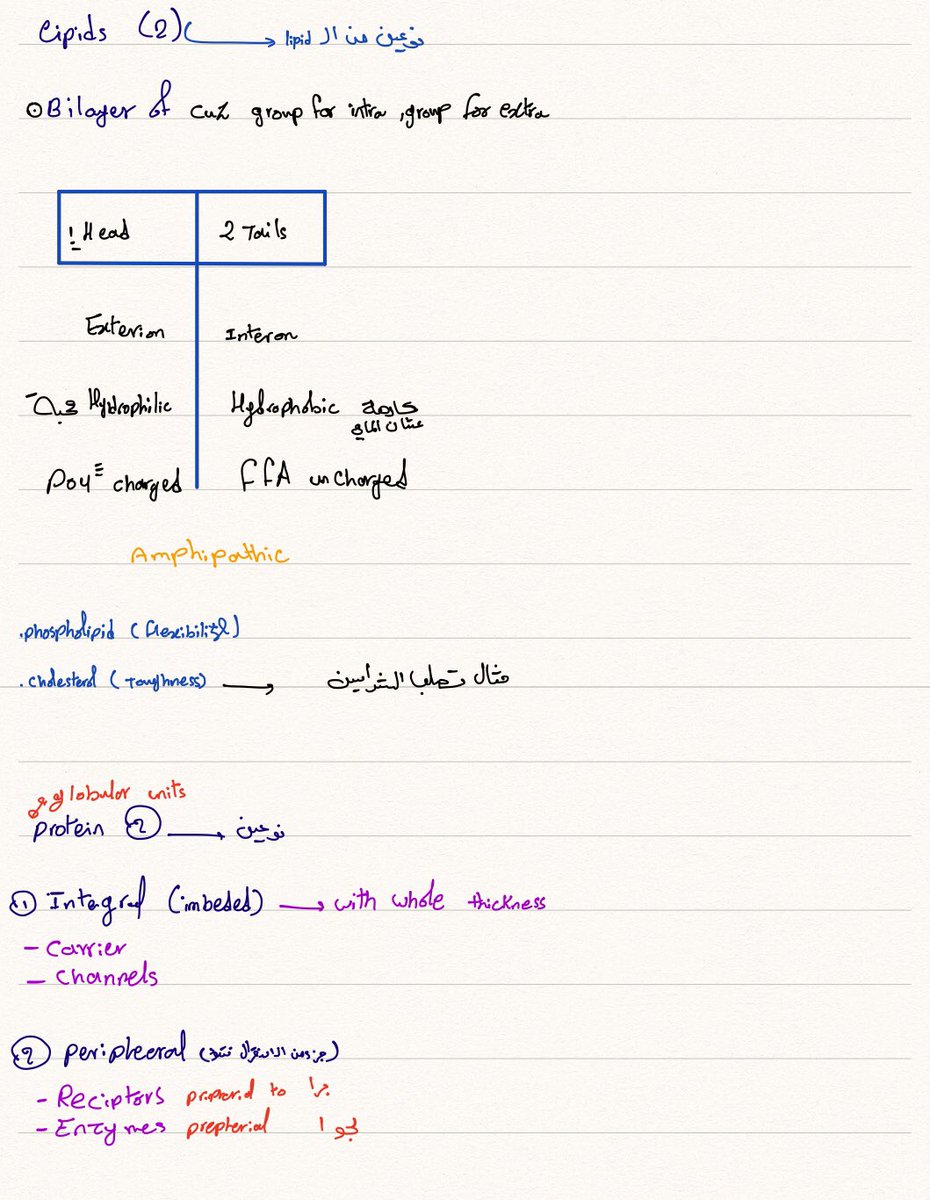 Lipids (2) نوعين من ال lipid
Bilayer of cuz group for intra , group for extra
1 Head 2 Tails
Exterion Interon
محبة Hydrophilic Hydrophobic كارهة
عشان الماي
Po4≡ charged FFA uncharged
Amphipathic
.phospholipid (flexibility)
.cholesterol (toughness) مثال تصلب الشرايين
globular units
protein (2) نوعين
(1) Integral (imbeded) with whole thickness
- Carrier
- Channels
(2) peripheoral
- Reciptors to برا
- Enzymes prepterial جوا